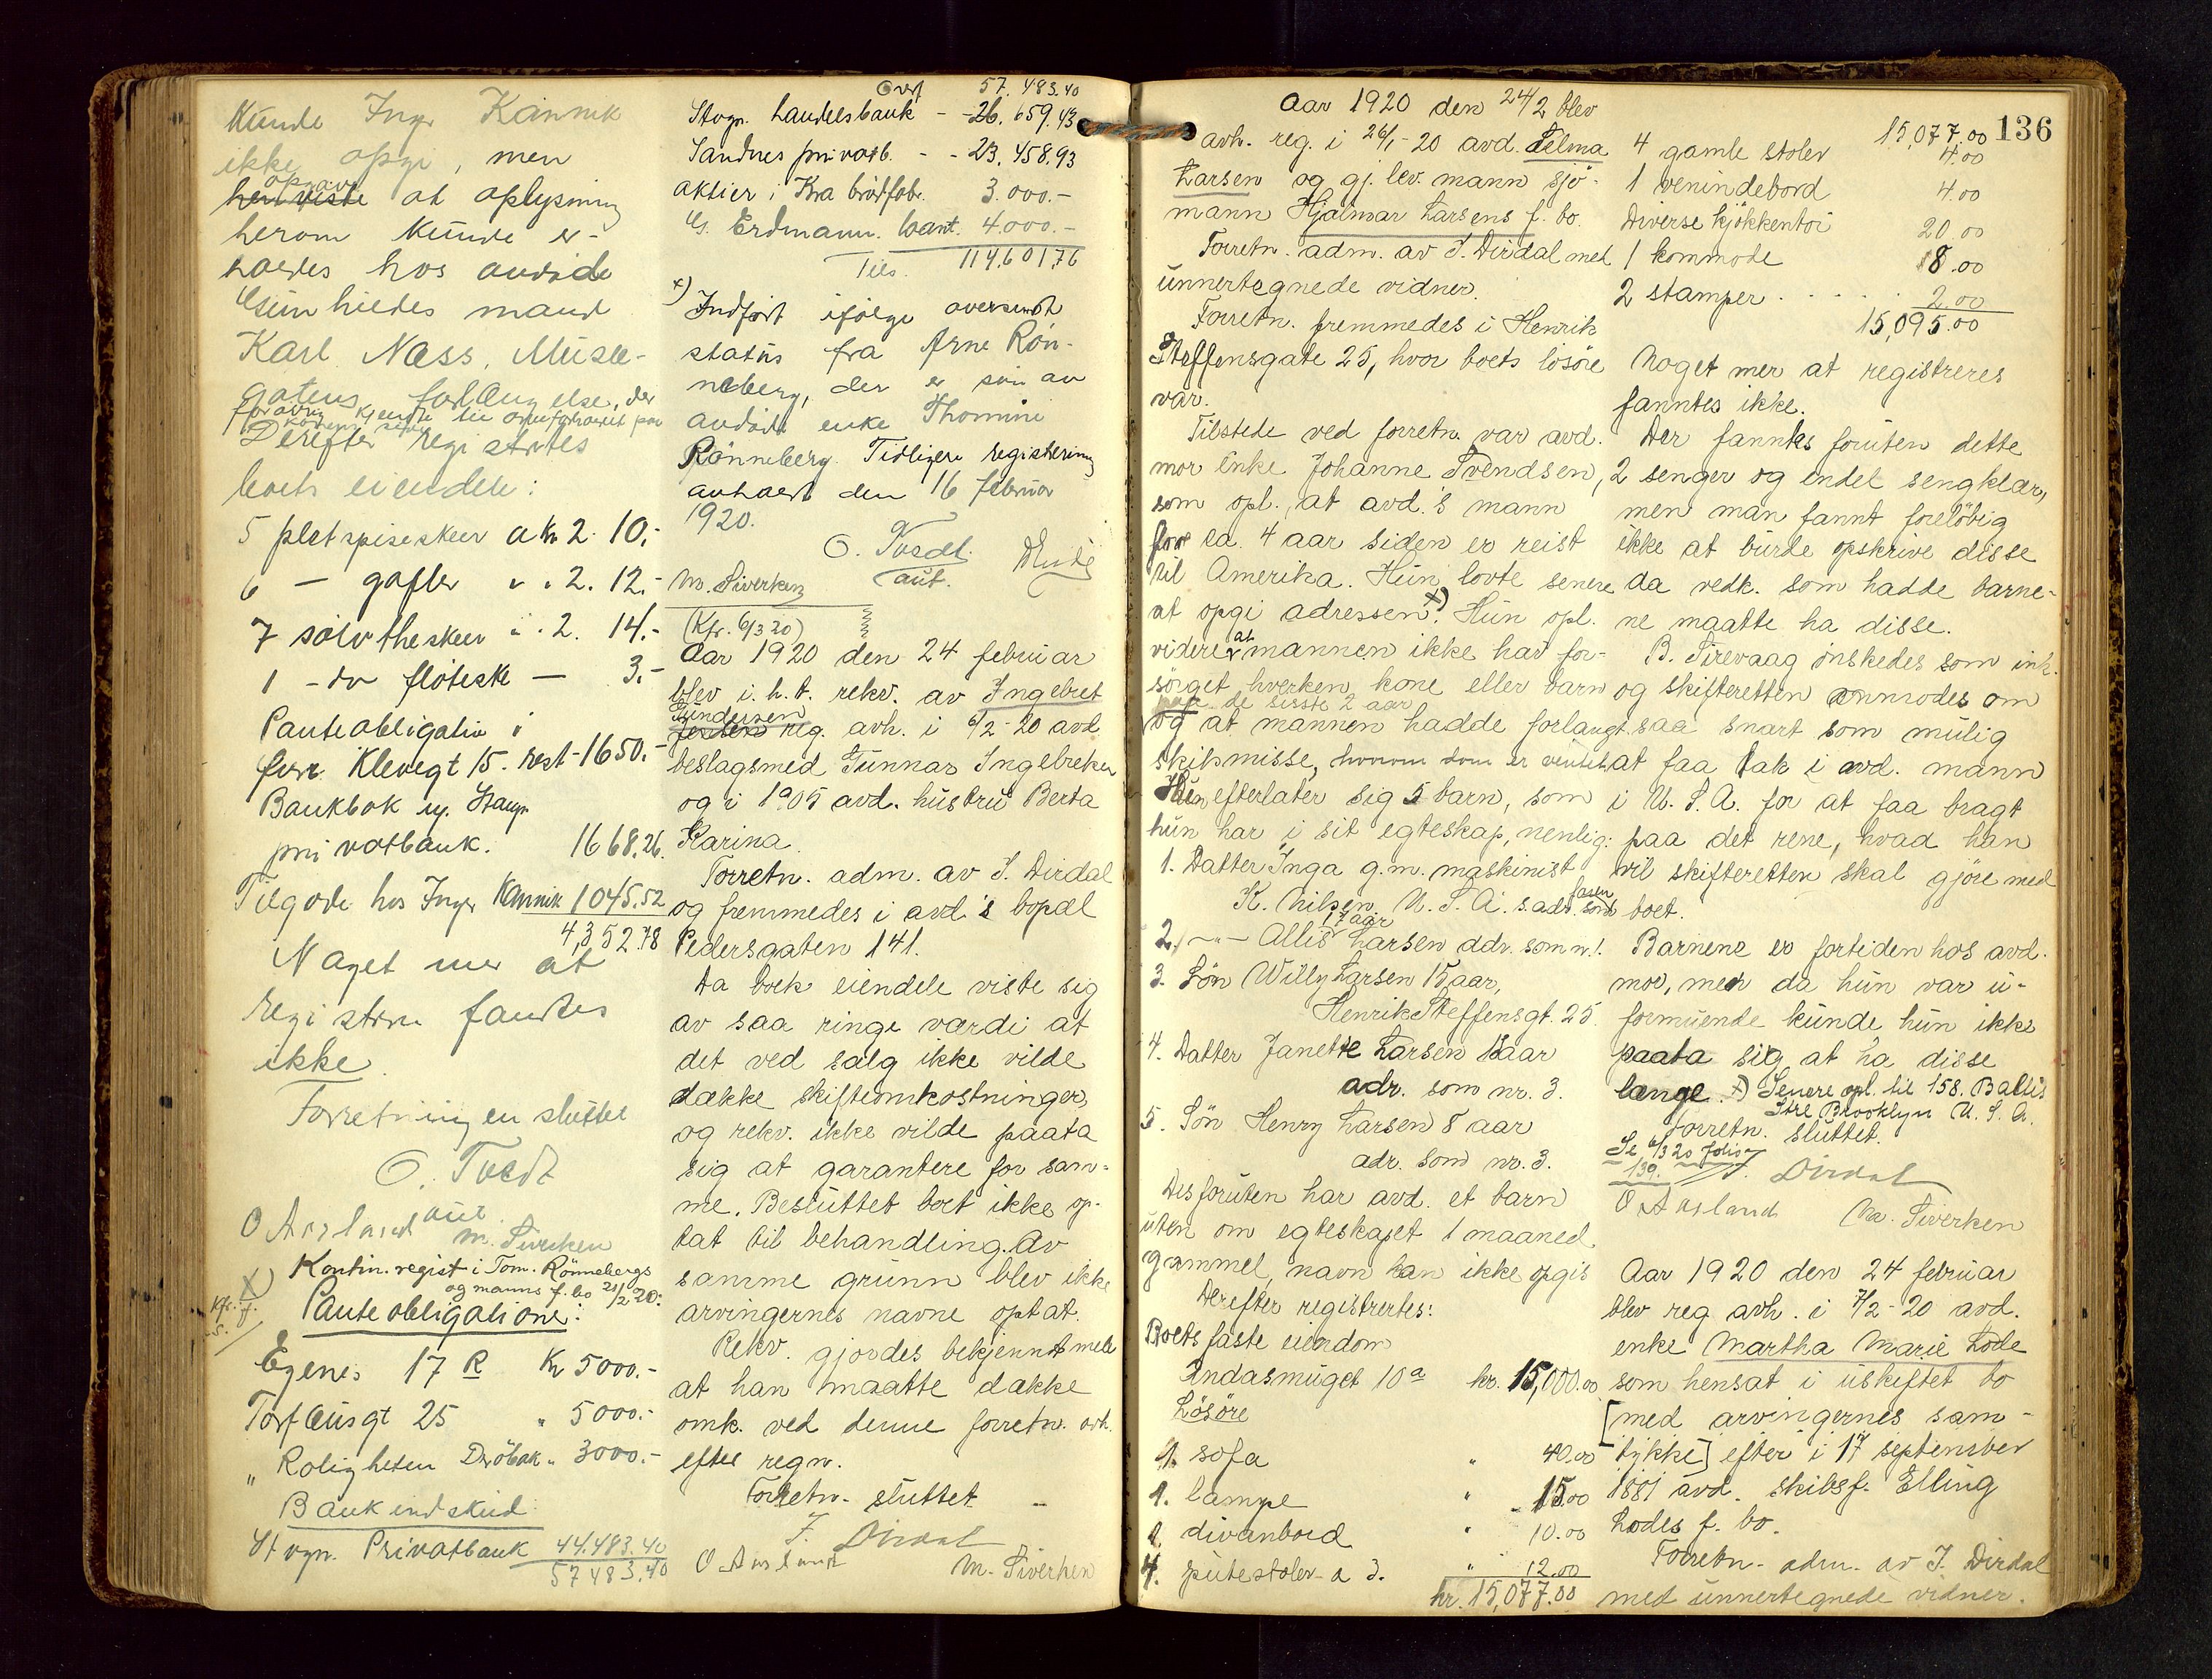 Kunde Ingr Kannik
ikke opgi, men
opgav
henviste at oplysning
herom kunde er-
holdes hos avdøde
Gunhildes mand
Karl Næss, Musæ-
gatens forlængelse, der
Derefter registrertes
boets eiendele:
5 pletspiseskeer a kr 2. 10.-
6 — gafler " " 2. 12.-
7 sølvtheskeer " . 2. 14.-
1 - do fløteske — 3.-
Panteobligation i
Klevegt 15. rest - 1650.-
Bankbok
privatbank. 1668.26.
Tilgode hos Ingr Kannik 1045.52
4,352.78
Noget mer at
registrere fandtes
ikke.
Forretningen sluttet
O. Tvedt
aut.
O Aasland M. Siverken
x) Kontin. regist i Tom. Rønnebergs
og manns f. bo 21/2 20:
Panteobligationer:
Egenes 17 R Kr 5000.-
Torfæusgt 25 " 5000.-
" Roligheten Drøbak " 3000.-
Bankindskud
Stvgr. Privatbank 44.483.40
57483.40
Overf 57.483.40
Stvgr. handelsbank - - 26.659.43
Sandnes privatb. - - 23.458.93
aktier i Kra brødfabr. 3.000.-
G. Erdmann. want. 4.000.-
Tils. 114,601.76
x)
Indført ifølge oversendt
status fra Arne Røn-
neberg, der er søn av
avdøde enke Thomine
Rønneberg. Tidligere registrering
avholdt den 16 februar
1920.
O. Tvedt.
aut.
M. Siverken
(Kfr. 6/3 20)
Aar 1920 den 24 februar
blev i h. t. rekv. av Ingebret
Gundersen
reg. avh. i 6/2-20 avd.
beslagsmed Gunnar Ingebretsen
og i 1905 avd. hustru Berta
Karina.
Forretn. adm. av J. Dirdal
og fremmedes i avd's bopæl
Pedersgaten 141.
Da boets eiendele viste sig
av saa ringe værdi at
det ved salg ikke vilde
dække skifteomkostninger,
og rekv. ikke vilde paata
sig at garantere for sam-
me. Besluttet boet ikke op-
tat til behandling. Av
samme grunn blev ikke
arvingernes navne optat.
Rekv. gjordes bekjennt med
at han maatte dække
omk. ved denne forretn. avh.
efter regn.
Forretn. sluttet —
J. Dirdal
O Aasland M. Siverken
136
Aar 1920 den 24/2 blev
avh. reg. i 26/1-20 avd. Telma
Larsen og gj. lev. mann sjø-
mann Hjalmar Larsens f. bo.
Forretn. adm. av J. Dirdal med
unnertegnede vidner.
Forretn. fremmedes i Henrik
Steffensgate 25, hvor boets løsøre
var.
Tilstede ved forretn. var avd.
mor enke Johanne Svendsen,
som opl., at avd.'s mann
for ca. 4 aar siden er reist
til Amerika. Hun lovte senere
at opgi adressen x). Hun opl.
videre at mannen ikke har for-
sørget hverken kone eller barn
de sisste 2 aar
og at mannen hadde forlangt
skilsmisse,
Hun efterlater sig 5 barn, som
hun har i sit egteskap, nemlig:
1. Datter Inga g.m. maskinist
K. Nilsen U. S. A. s. adr.
17 aar
2. —"— Allis Larsen adr. som nr 1.
3. Søn Willy Larsen 15 aar,
Henrik Steffensgt. 25.
4. Datter Janette Larsen 13 aar
adr. som nr. 3.
5. Søn Henry Larsen 8 aar
adr. som nr. 3.
Desforuten har avd. et barn
uten om egteskapet 1 maaned
gammel, navn kan ikke opgis
Derefter registrertes:
Boets faste eiendom
Andasmuget 10a kr. 15,000.00
Løsøre
1. sofa " 40.00
1. lampe " 15.00
1. divanbord " 10.00
4. putestoler a 3. " 12.00
kr. 15,077.00
15,077.00
4 gamle stoler 4.00
1 venindebord 4.00
Diverse kjøkkentøi 20.00
1 kommode 8.00
2 stamper . . . . . 2.00
15,095.00
Noget mer at registreres
fanntes ikke.
Der fanntes foruten dette
2 senger og endel sengklær,
men man fannt foreløbig
ikke at burde opskrive disse
da vedk. som hadde barne-
ne maatte ha disse.
B. Sirevaag ønskedes som ink.
og skifteretten anmodes om
saa snart som mulig
at faa tak i avd. mann
i U. S. A. for at faa bragt
paa det rene, hvad han
vil skifteretten skal gjøre med
boet.
Barnene er fortiden hos avd.
mor, men da hun var u-
formuende kunde hun ikke
paata sig at ha disse
længe. x) Senere opl. til 158. Baltis
Stre Brooklyn U. S. A.
Forretn. sluttet.
Se 6/3 20 folio
139. J. Dirdal
O Aasland M. Siverken
Aar 1920 den 24 februar
blev reg avh. i 7/2-20 avd.
enke Martha Marie Lode
som hensat i uskiftet bo
[med arvingernes sam-
tykke] efter i 17 september
1881 avd. skibsf. Elling
Lodes f. bo.
Forretn. adm. av J. Dirdal
med unnertegnede vidner.